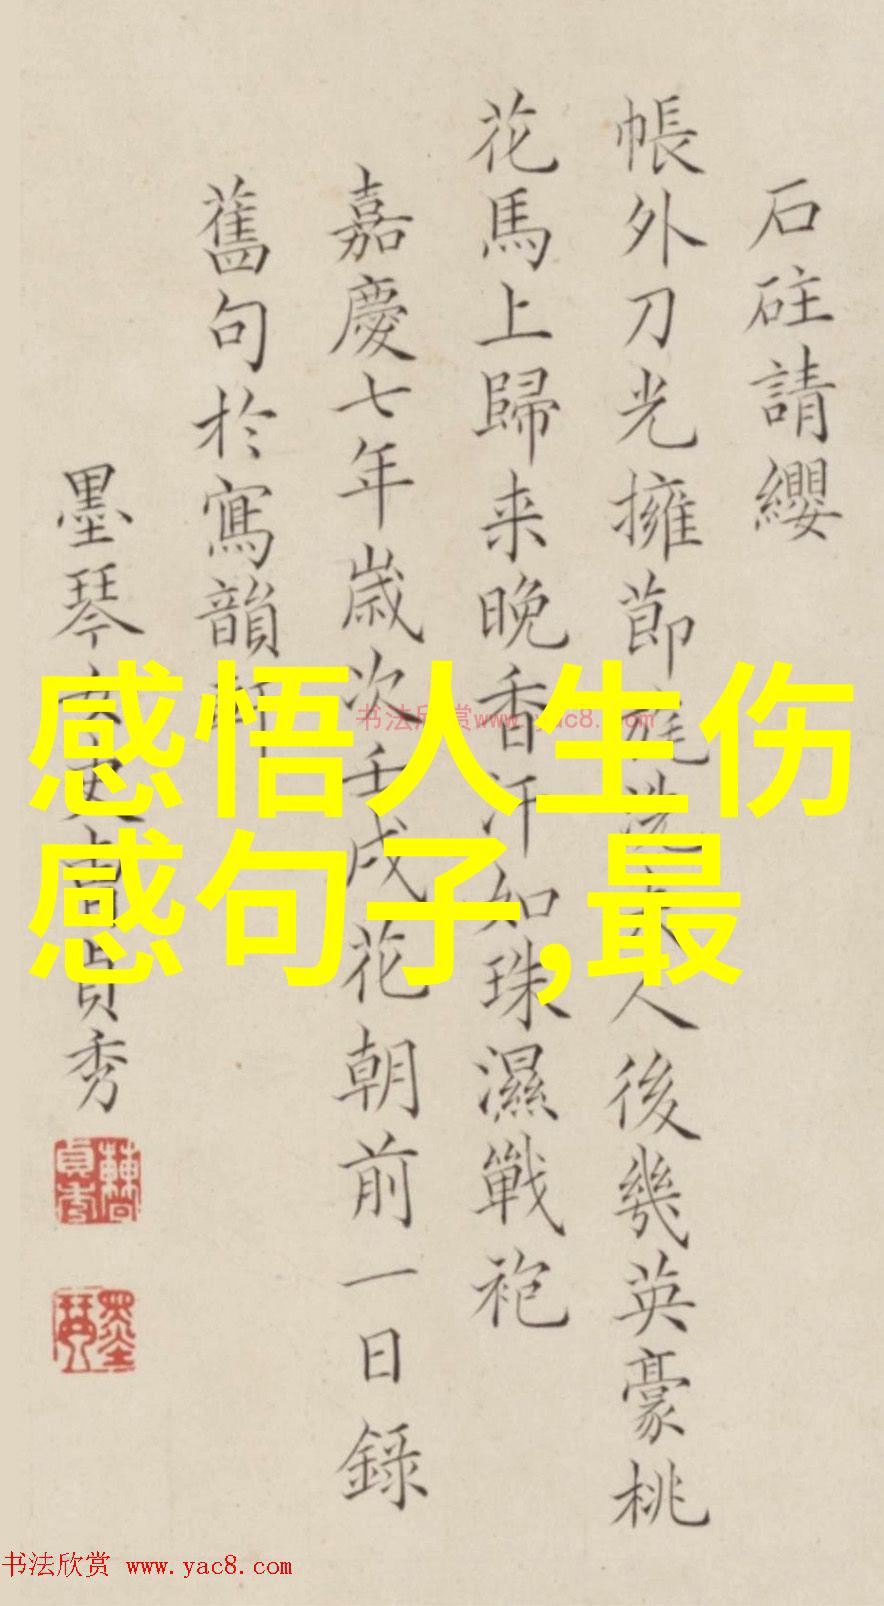 石砫請纓
帳外刀光擁節旄洗夫人後幾英豪桃
花馬上歸来晚香汗如珠濕戰袍
嘉慶七年歲次壬戌花朝前一日錄
舊句於寫韻軒
墨琴女史曹貞秀
感悟人生伤
感句子,最
书法欣赏www.yac8.com
书法欣赏 www.yac8.com